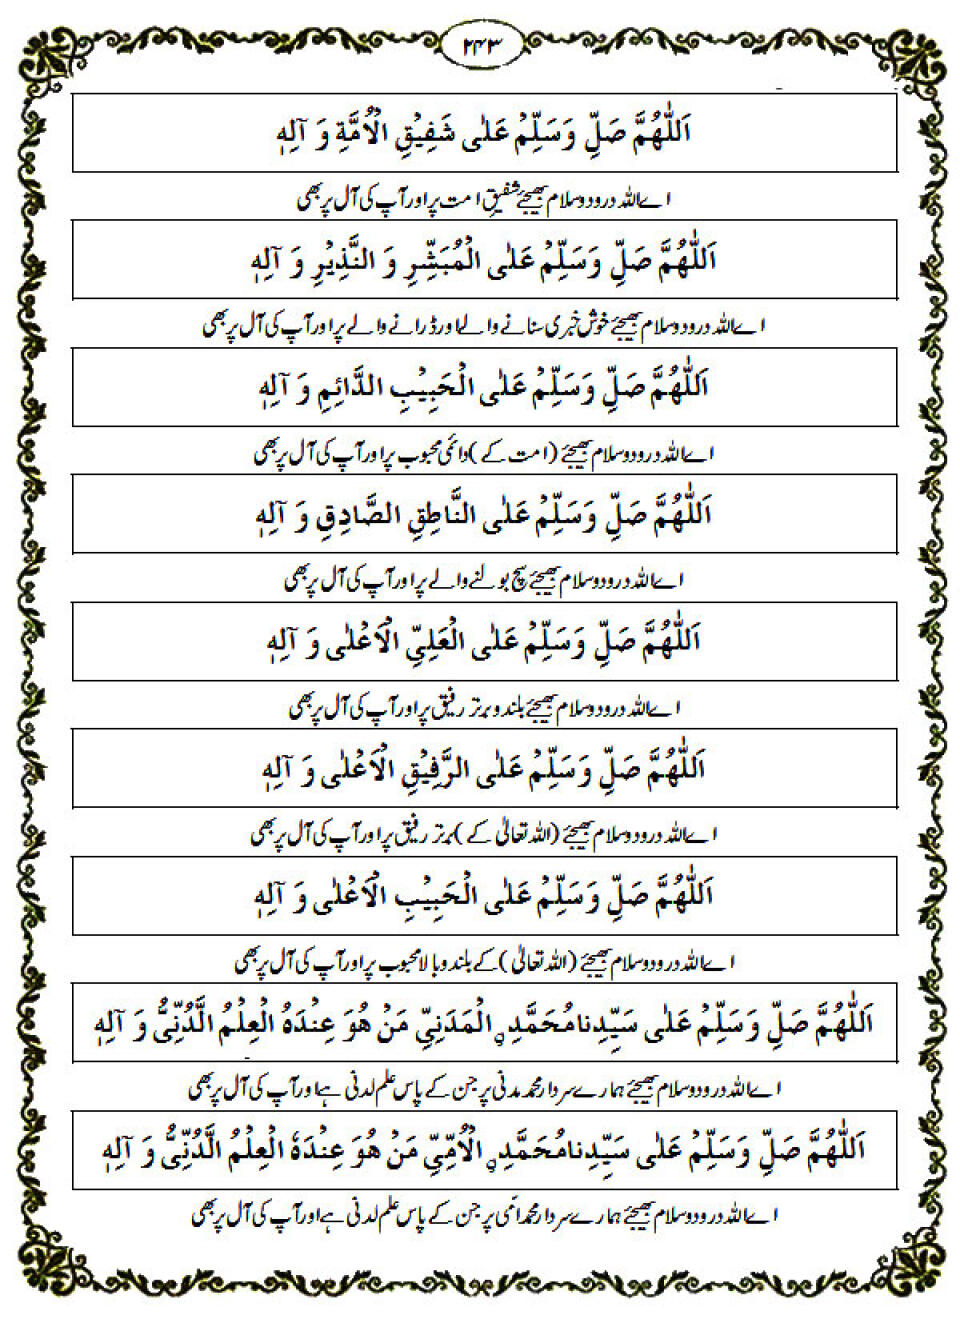 ۲۴۳
اَللّٰهُمَّ صَلِّ وَسَلِّمْ عَلٰی شَفِیْقِ الْاُمَّةِ وَ آلِهٖ
اے اللہ درود و سلام بھیجئے شفیقِ امت پر اور آپ کی آل پر بھی
اَللّٰهُمَّ صَلِّ وَسَلِّمْ عَلٰی الْمُبَشِّرِ وَ النَّذِیْرِ وَ آلِهٖ
اے اللہ درود و سلام بھیجئے خوش خبری سنانے والے اور ڈرانے والے پر اور آپ کی آل پر بھی
اَللّٰهُمَّ صَلِّ وَسَلِّمْ عَلٰی الْحَبِیْبِ الدَّائِمِ وَ آلِهٖ
اے اللہ درود و سلام بھیجئے (امت کے) دائمی محبوب پر اور آپ کی آل پر بھی
اَللّٰهُمَّ صَلِّ وَسَلِّمْ عَلٰی النَّاطِقِ الصَّادِقِ وَ آلِهٖ
اے اللہ درود و سلام بھیجئے سچ بولنے والے پر اور آپ کی آل پر بھی
اَللّٰهُمَّ صَلِّ وَسَلِّمْ عَلٰی الْعَلِیِّ الْاَعْلٰی وَ آلِهٖ
اے اللہ درود و سلام بھیجئے بلند و برتر رفیق پر اور آپ کی آل پر بھی
اَللّٰهُمَّ صَلِّ وَسَلِّمْ عَلٰی الرَّفِیْقِ الْاَعْلٰی وَ آلِهٖ
اے اللہ درود و سلام بھیجئے (اللہ تعالیٰ کے) برتر رفیق پر اور آپ کی آل پر بھی
اَللّٰهُمَّ صَلِّ وَسَلِّمْ عَلٰی الْحَبِیْبِ الْاَعْلٰی وَ آلِهٖ
اے اللہ درود و سلام بھیجئے (اللہ تعالیٰ) کے بلند و بالا محبوب پر اور آپ کی آل پر بھی
اَللّٰهُمَّ صَلِّ وَسَلِّمْ عَلٰی سَیِّدِنا مُحَمَّدِ ۣ الْمَدَنِیِّ مَنْ هُوَ عِنْدَهُ الْعِلْمُ الَّدُنِّیُّ وَ آلِهٖ
اے اللہ درود و سلام بھیجئے ہمارے سردار محمد مدنی پر جن کے پاس علم لدنی ہے اور آپ کی آل پر بھی
اَللّٰهُمَّ صَلِّ وَسَلِّمْ عَلٰی سَیِّدِنا مُحَمَّدِ ۣ الْاُمِّیِّ مَنْ هُوَ عِنْدَهُ الْعِلْمُ الَّدُنِّیُّ وَ آلِهٖ
اے اللہ درود و سلام بھیجئے ہمارے سردار محمد امی پر جن کے پاس علم لدنی ہے اور آپ کی آل پر بھی